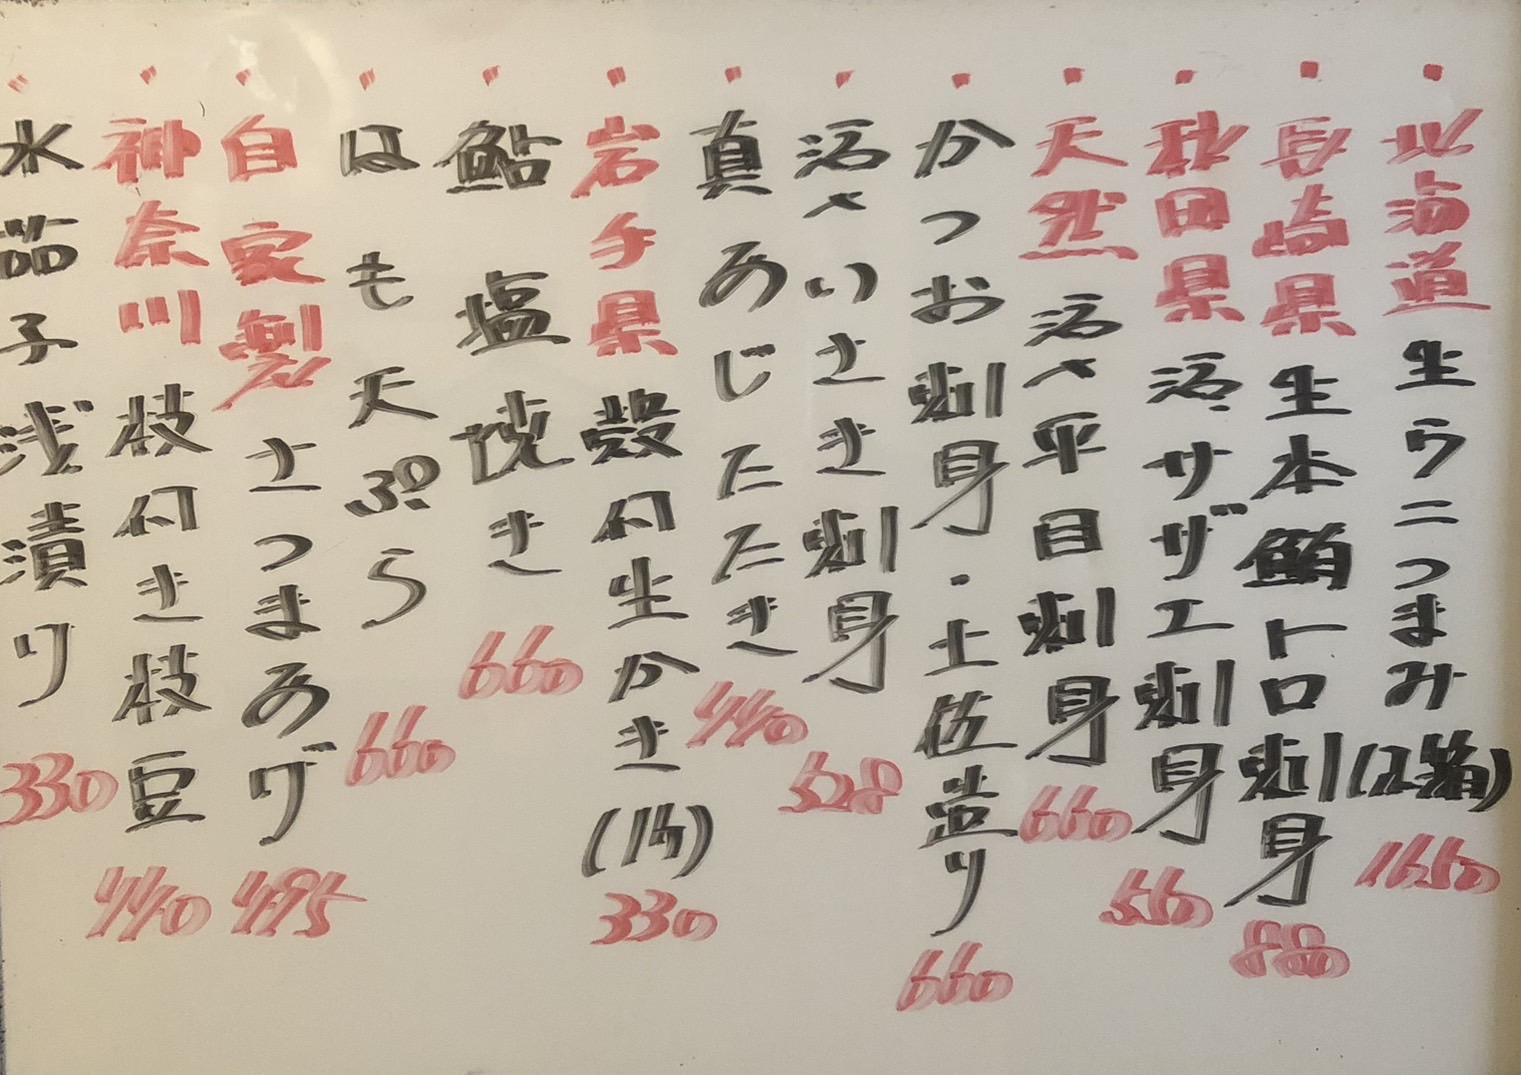 北海道生ウニつまみ(2箱) 1650
長崎県生本鮪トロ刺身 880
秋田県活サザエ刺身 550
天然活〆平目刺身 660
かつお刺身・土佐造り 660
活〆いさき刺身 528
真あじたたき 440
岩手県殻付生かき(1ケ) 330
鮎塩焼き 660
はも天ぷら 660
自家製さつまあげ 495
神奈川枝付き枝豆 440
水茄子浅漬り 330